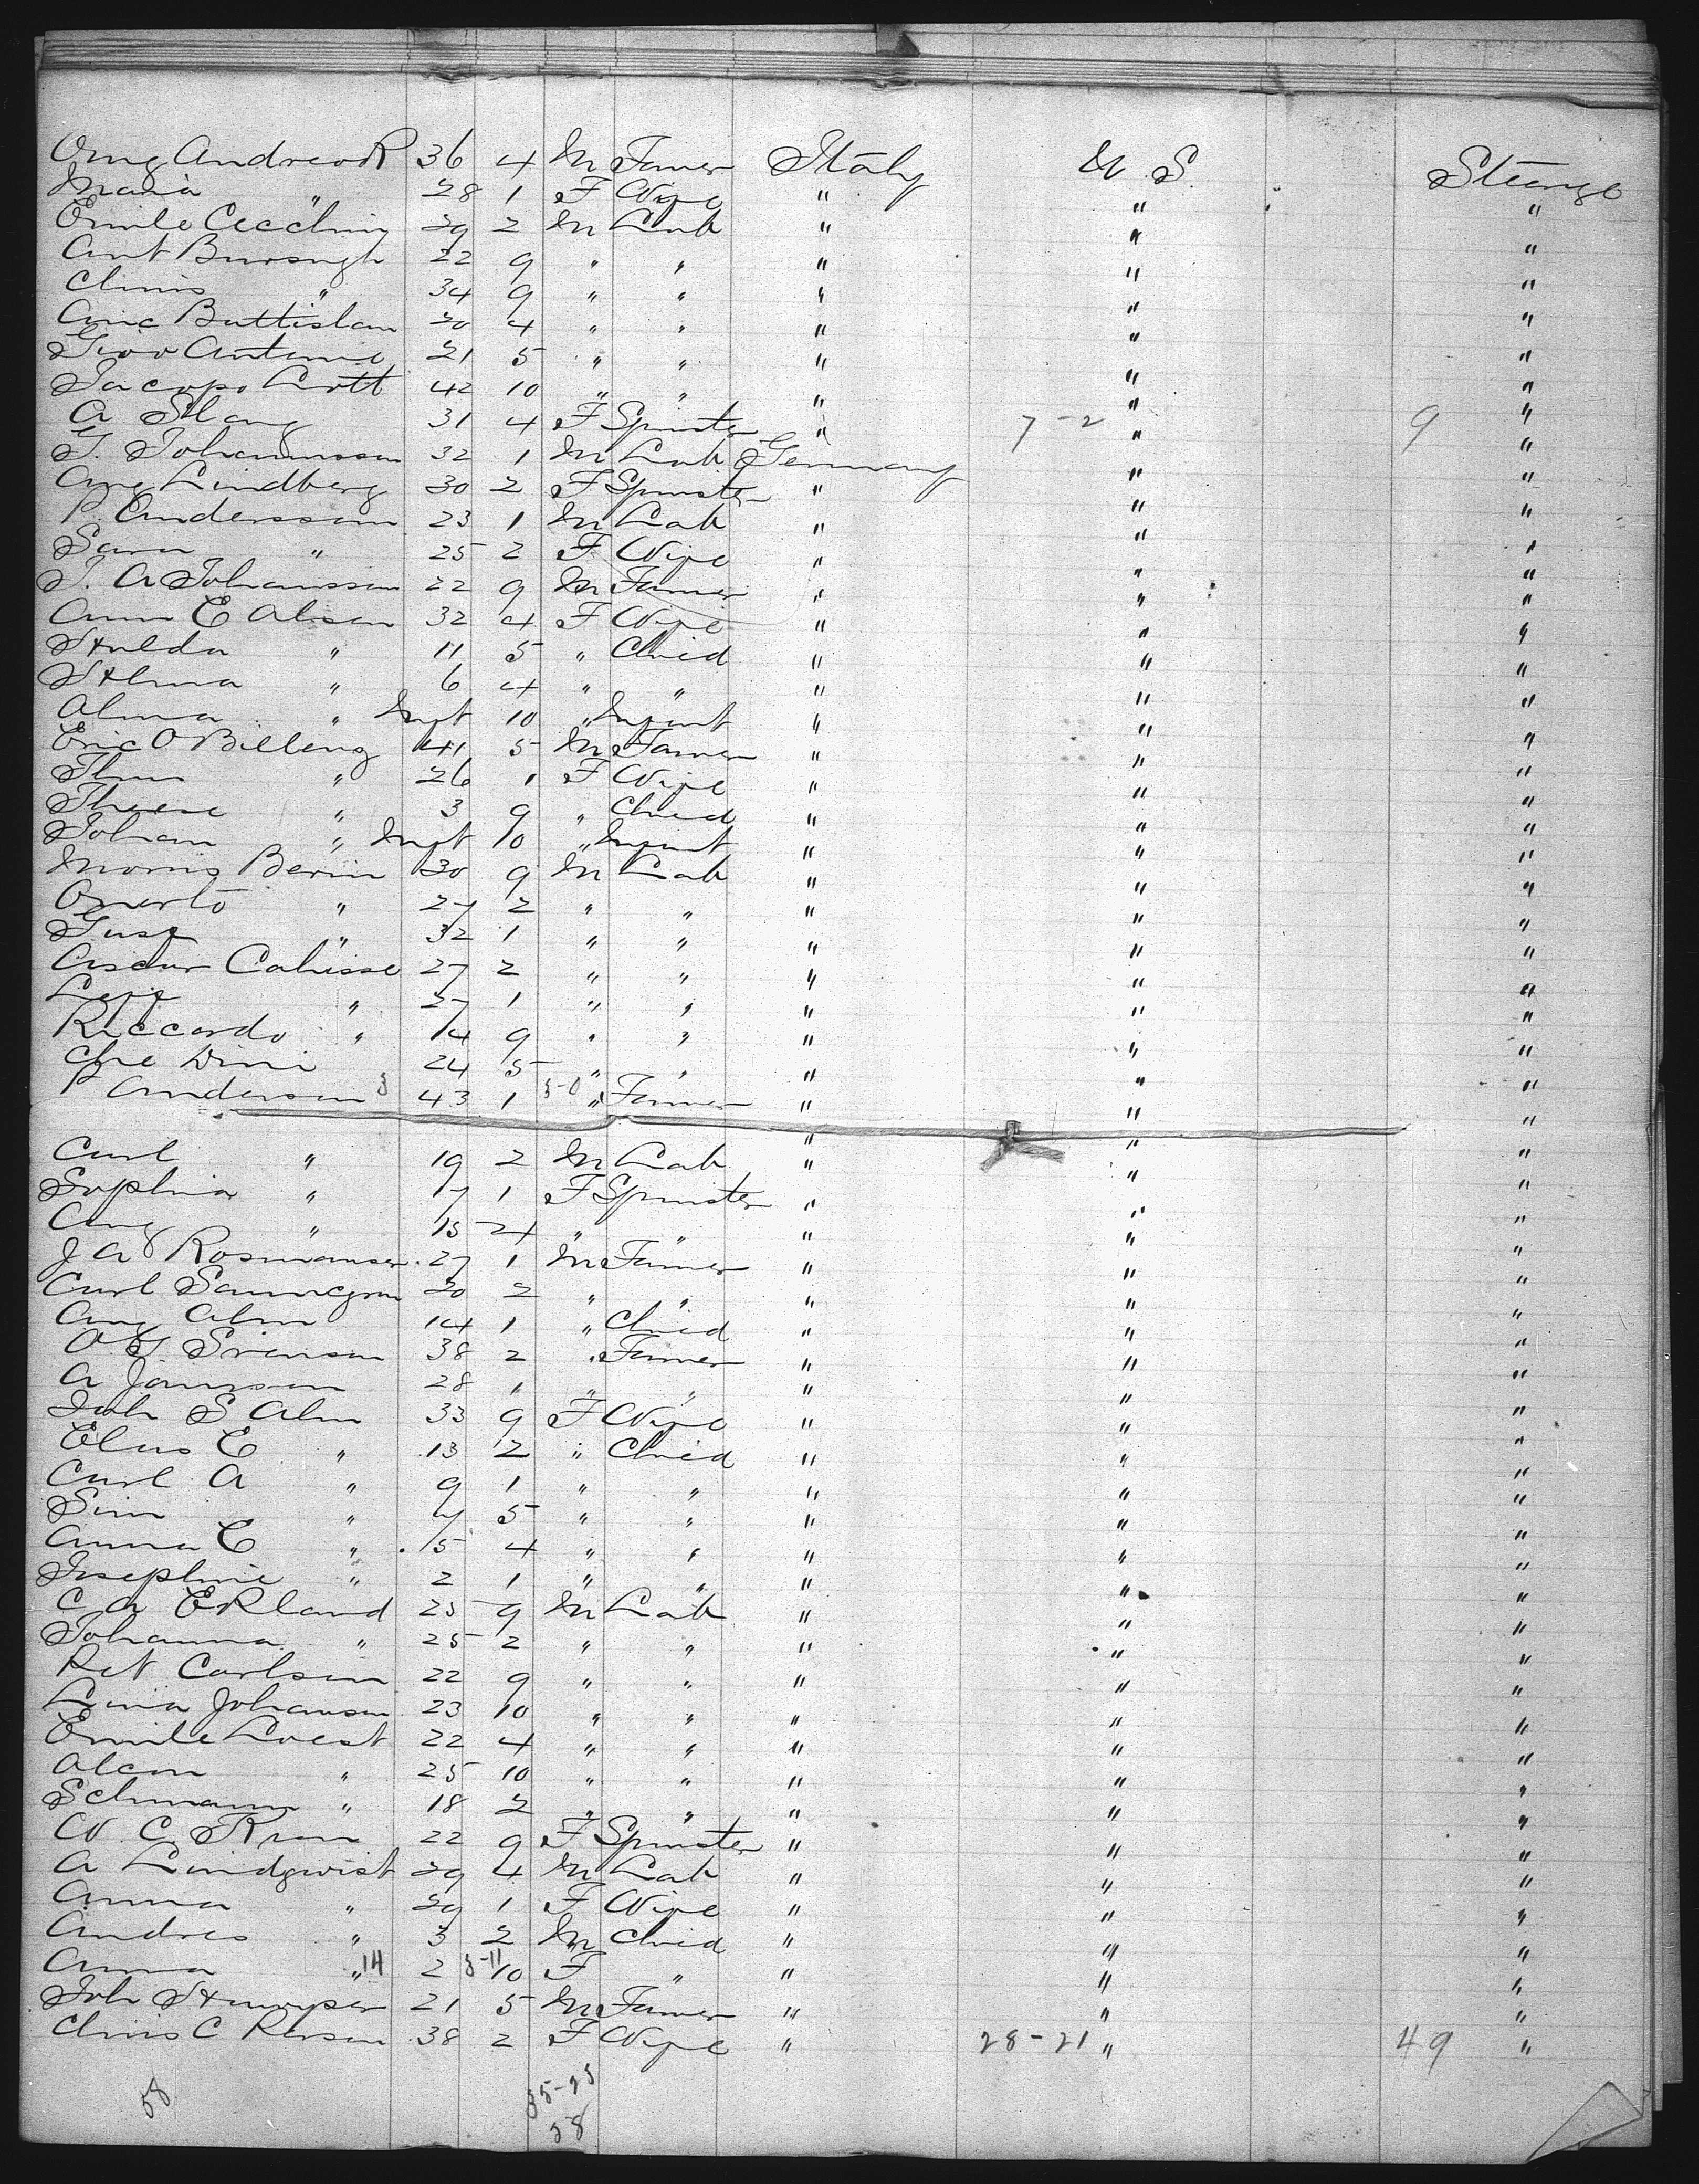 Andreas R 36 4 M Farmer Italy U S. Steerage
Maria " 28 1 F Wife " " "
Emile Cecchini 29 2 M Lab " " "
Ant 22 9 " " " " "
" 34 9 " " " " "
Battistam 20 4 " " " " "
Giov Antonio 21 5 " " " " "
Jacopo Lott 42 10 " " " " "
A Slang 31 4 F Spinster " 7-2 " 9 "
G. Johannsson 32 1 M Lab Germany " "
Aug Lindberg 30 2 F Spinster " " "
P. Andersson 23 1 M Lab " " "
Sara " 25 2 F Wife " " "
J. A Johansson 22 9 M Farmer " " "
Ann E Alisen 32 4 F Wife " " "
Hulda " 11 5 " Child " " "
Helma " 6 4 " " " " "
Alma " Inft 10 " Infant " " "
Eric O Billeng 41 5 M Farmer " " "
" 26 1 F Wife " " "
Therese " 3 9 " Child " " "
Johan " Inft 10 " Infant " " "
Morris Berin 30 9 M Lab " " "
" 27 2 " " " " "
Gusf " 32 1 " " " " "
Cahisse 27 2 " " " " "
" 27 1 " " " " "
Riccardo " 14 9 " " " " "
24 5 " " " " "
P Anderson 3 43 1 3-0 " Farmer " " "
Carl " 19 2 M Lab " " "
Sophia " 17 1 F Spinster " " "
Aug " 15 4 " " " " "
J A Rosmanser 27 1 M Farmer " " "
Carl 20 2 " " " " "
Aug Alm 14 1 " Child " " "
O G Svenson 38 2 " Farmer " " "
A Jansson 28 1 " " " " "
Joh S Alm 33 9 F Wife " " "
Elus E " 13 2 " Child " " "
Carl A " 9 1 " " " " "
" 7 5 " " " " "
Anna E " 5 4 " " " " "
Josephine " 2 1 " " " " "
C A Ekland 25 9 M Lab " " "
Johanna " 25 2 " " " " "
Carlson 22 9 " " " " "
Lina Johanson 23 10 " " " " "
Emile Loest 22 4 " " " " "
" 25 10 " " " " "
Schmann " 18 2 " " " " "
W. C. 22 9 F Spinster " " "
A Lindqwist 29 4 M Lab " " "
Anna " 29 1 F Wife " " "
Andres " 3 2 M Child " " "
Anna " 14 2 3-11 10 F " " " "
Joh 21 5 M Farmer " " "
Chris C 38 2 F Wife " 28-21 " 49 "
58 35-23
58